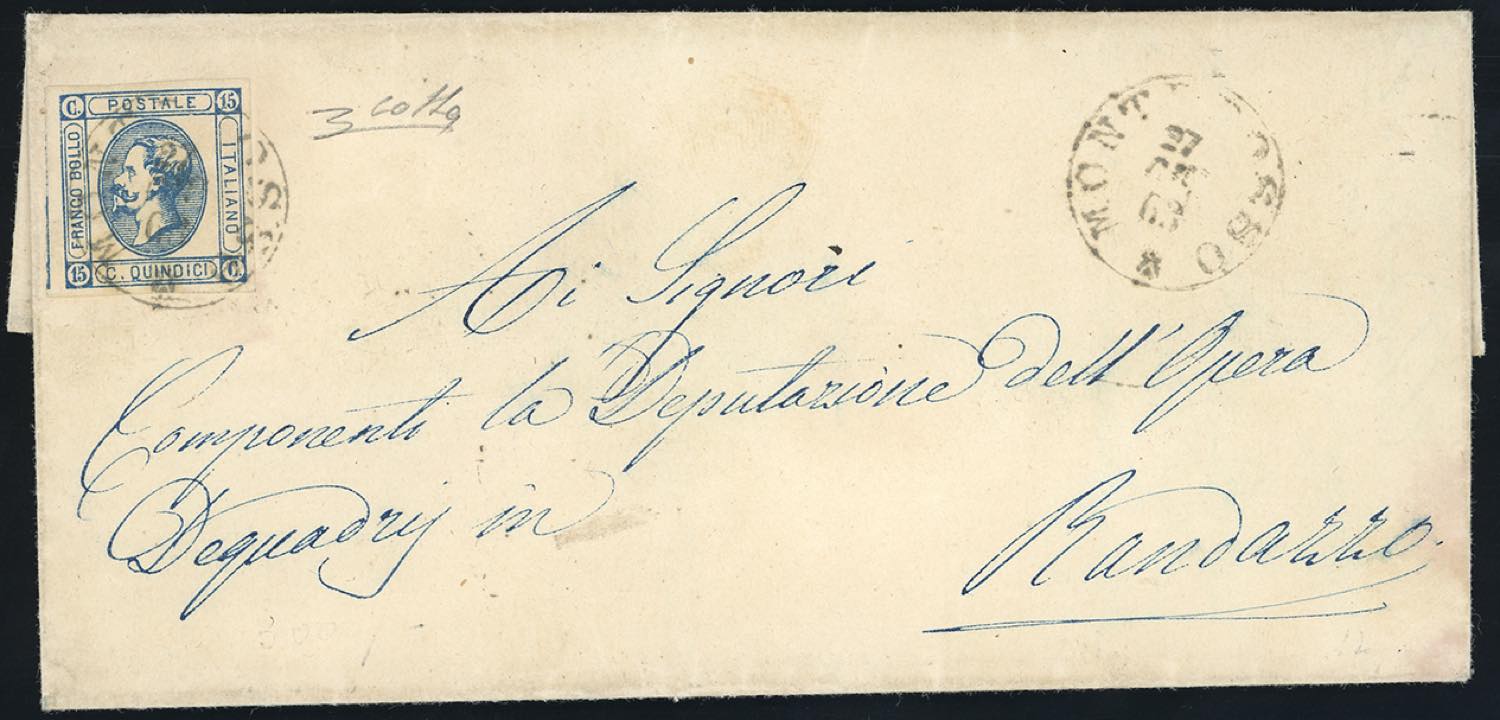 C. POSTALE 15
FRANCO BOLLO
ITALIANO
15 C. QUINDICI C.
3 cotto
MONT OSSO
27
63
*
Ai Signori
Componenti la Deputazione dell'Opera
Dequadrij in
Randazzo